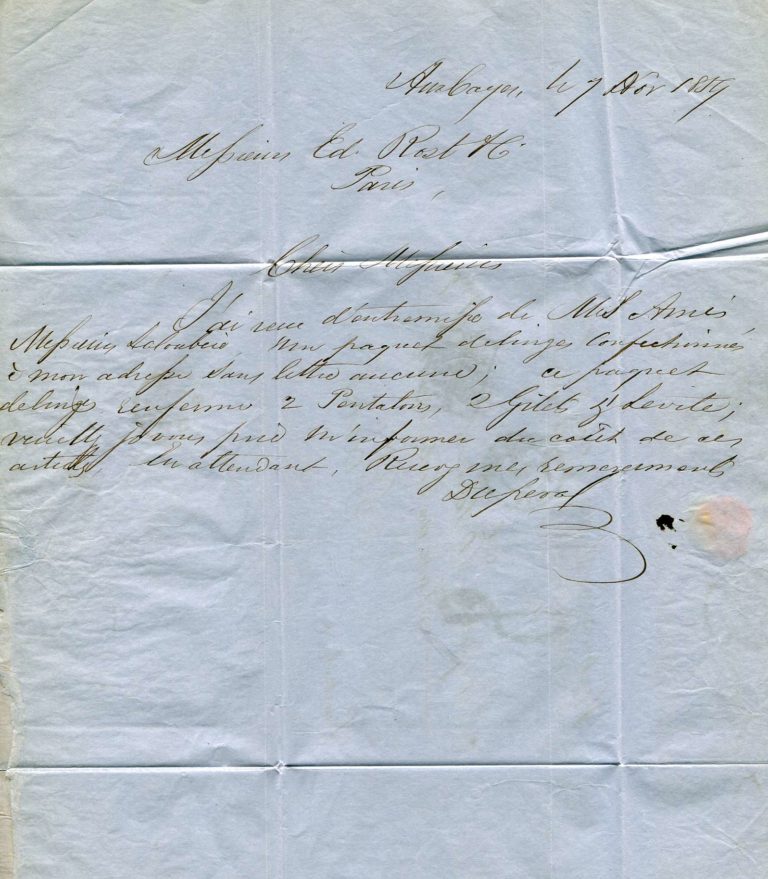 Aux Cayes, le 7 Nov 1859
Messieurs Ed. Rost &
Paris,
Chers Messieurs
J'ai recu d'entremise de MS Amis
Messieurs un paquet de linges confectionnés
à mon adresse sans lettre aucune; ce paquet
de linge renferme 2 Pentalons, 2 Gilets & 1 Levite;
veuillez je vous prie m'informer du coût de ces
articles, En attendant, Recevez mes remerciements
Duperval